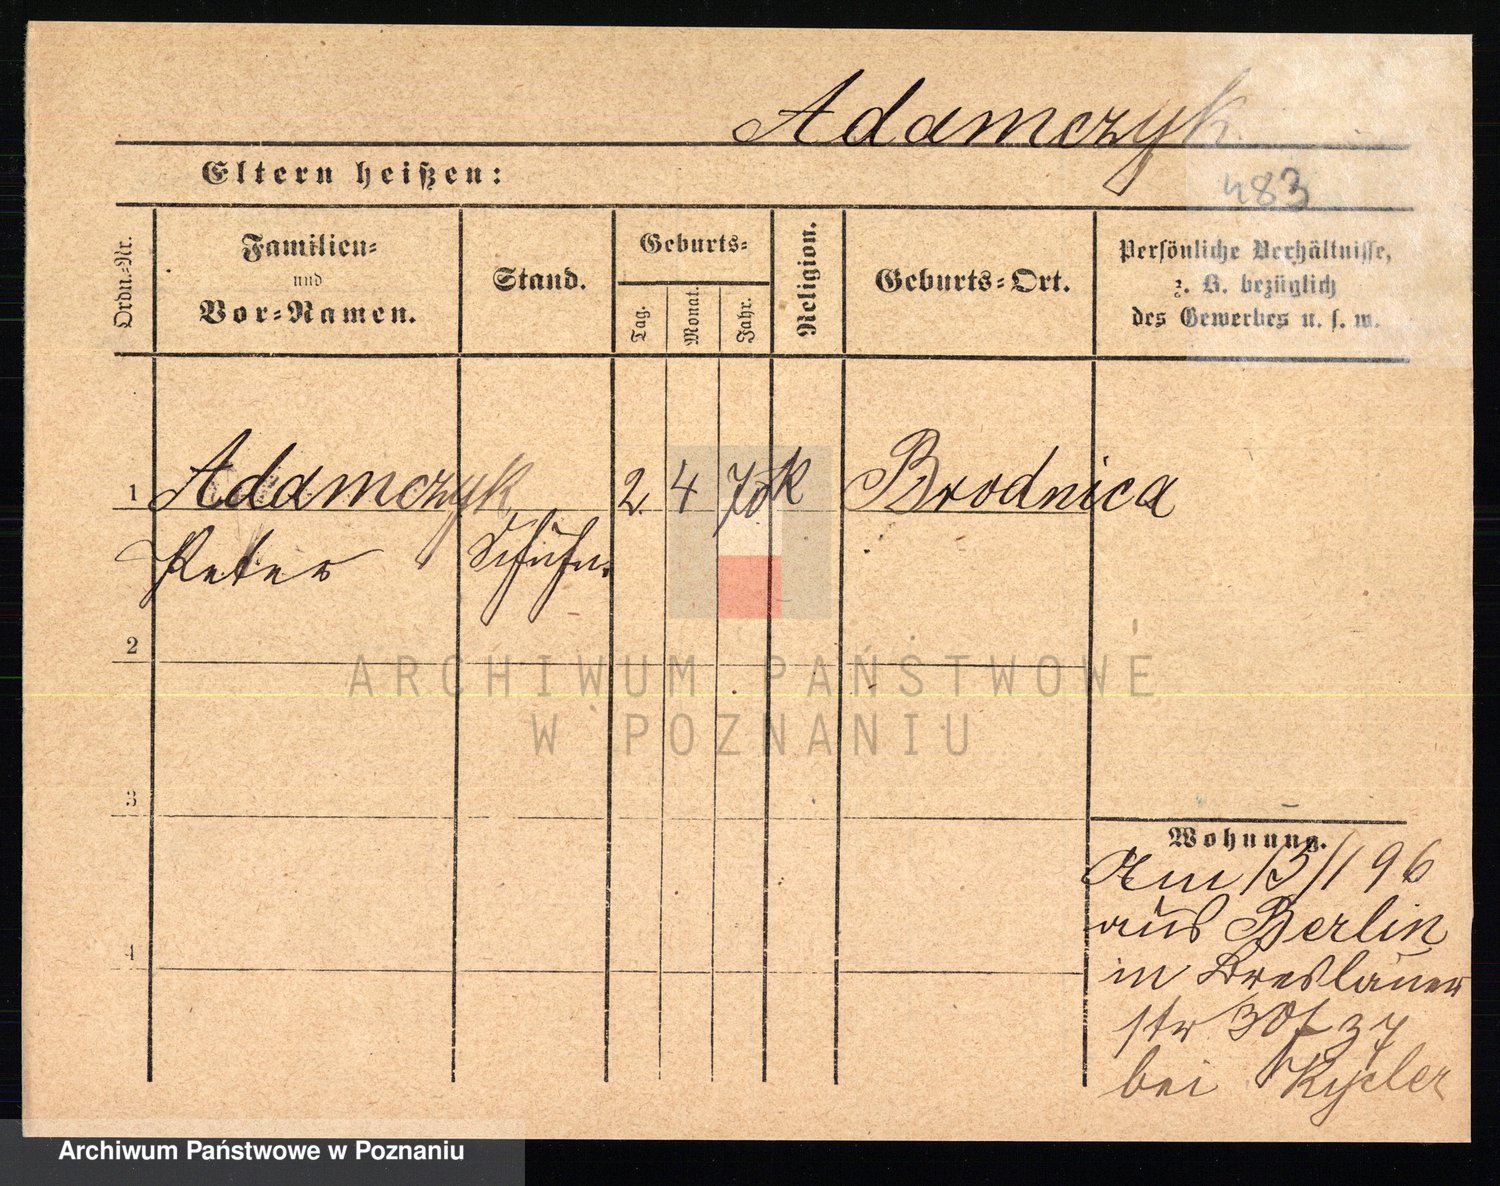 Adamczyk
Eltern heißen:
483
Ordn.-Nr.
Familien-
und
Vor-Namen.
Stand.
Geburts-
Tag.
Monat.
Jahr.
Religion.
Geburts-Ort.
Persönliche Verhältnisse,
z. B. bezüglich
des Gewerbes u. s. w.
1 Adamczyk 2 4 70 K Brodnica
Peter Schuhm.
2
ARCHIWUM PAŃSTWOWE
W POZNANIU
3
Wohnung.
Am 13/1 96
aus Berlin
4
in Breslauer
str
bei
Archiwum Państwowe w Poznaniu